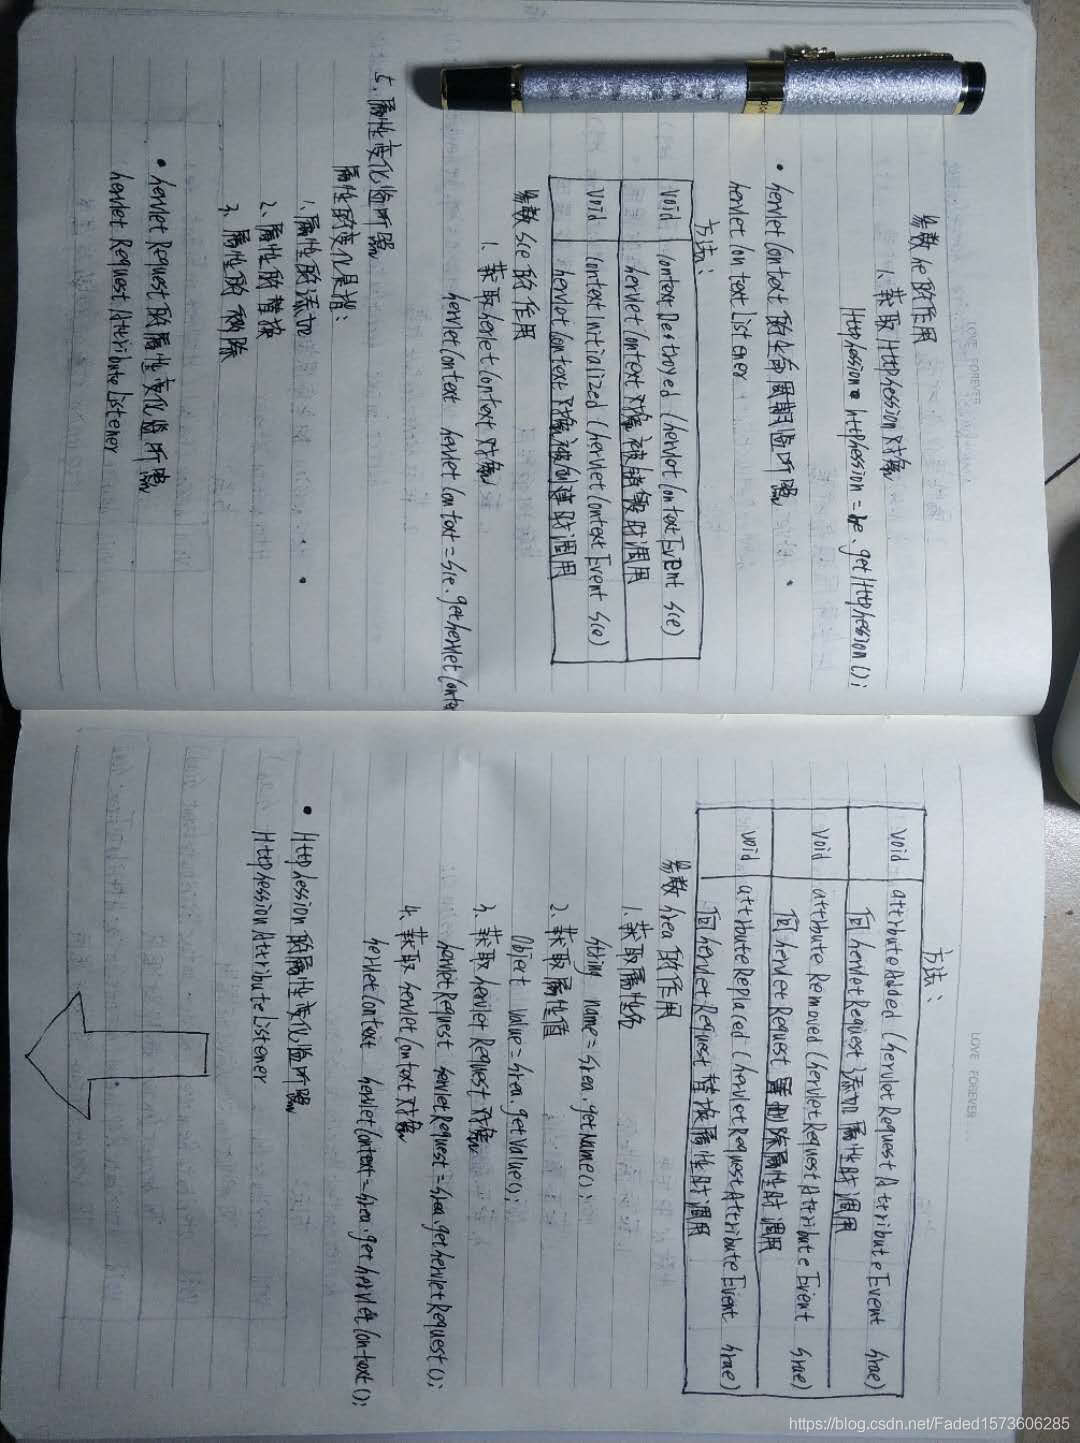 LOVE FOREVER
参数he的作用
1. 获取HttpSession对象
HttpSession httpSession = he.getHttpSession();
• ServletContext的生命周期监听器
ServletContextListener
方法：
void contextDestroyed (ServletContextEvent sce)
ServletContext对象被销毁时调用
void contextInitialized (ServletContextEvent sce)
ServletContext对象被创建时调用
参数sce的作用
1. 获取ServletContext对象
ServletContext servletContext = sce.getServletConte
5. 属性变化监听器
属性的变化是指：
1. 属性的添加
2. 属性的替换
3. 属性的移除
• ServletRequest的属性变化监听器
ServletRequestAttributeListener
LOVE FOREVER
方法：
void attributeAdded (ServletRequestAttributeEvent srae)
向ServletRequest添加属性时调用
void attributeRemoved (ServletRequestAttributeEvent srae)
向ServletRequest删除属性时调用
void attributeReplaced (ServletRequestAttributeEvent srae)
向ServletRequest替换属性时调用
参数srea的作用
1. 获取属性名
String name = srea.getName();
2. 获取属性值
Object value = srea.getValue();
3. 获取ServletRequest对象
ServletRequest servletRequest = srea.getServletRequest();
4. 获取ServletContext对象
ServletContext servletContext = srea.getServletContext();
• HttpSession的属性变化监听器
HttpSessionAttributeListener
https://blog.csdn.net/Faded1573606285